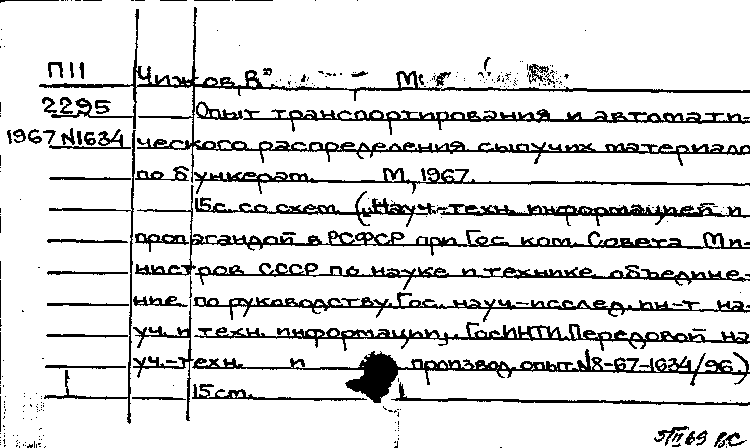 П11 Чижов, В. М.
2295 Опыт транспортирования и автомати-
1967 №1634 ческого распределения сыпучих материало
по бункерам. М., 1967.
15 с. со схем. („Науч.-техн. информацией и
пропагандой в РСФСР при Гос. ком. Совета Ми-
нистров СССР по науке и технике. объедине-
ние по руководству. Гос. науч.-исслед. ин-т на-
уч. и техн. информации. ГосИНТИ. Передовой на
уч.-техн. и производ. опыт. №8-67-1634/96.)
15 cm.